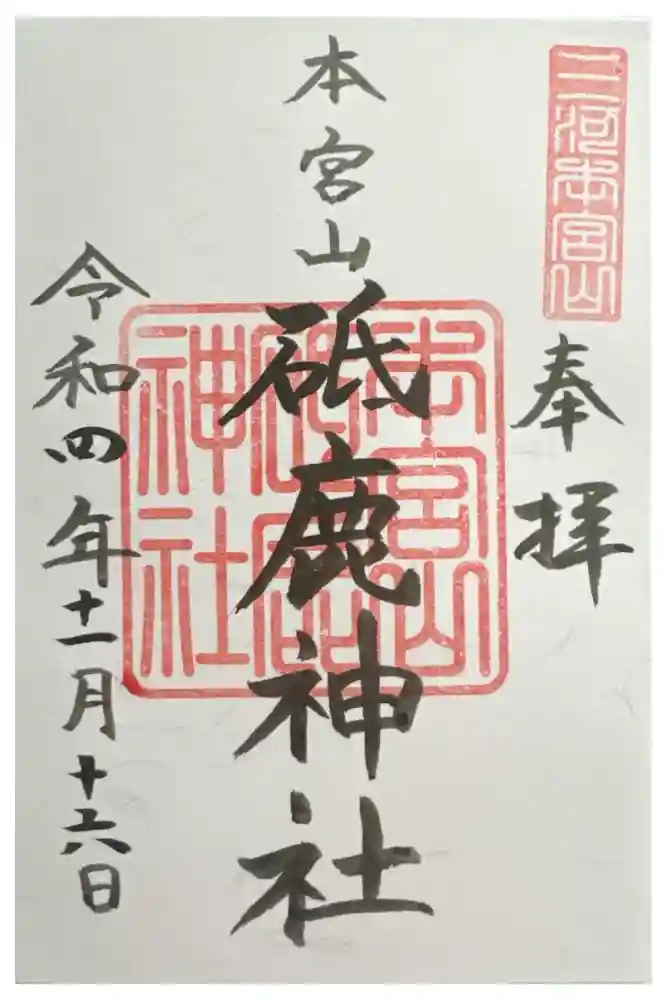 三河本宮山
奉拝
本宮山
砥鹿神社
本宮山砥鹿神社
令和四年十一月十六日